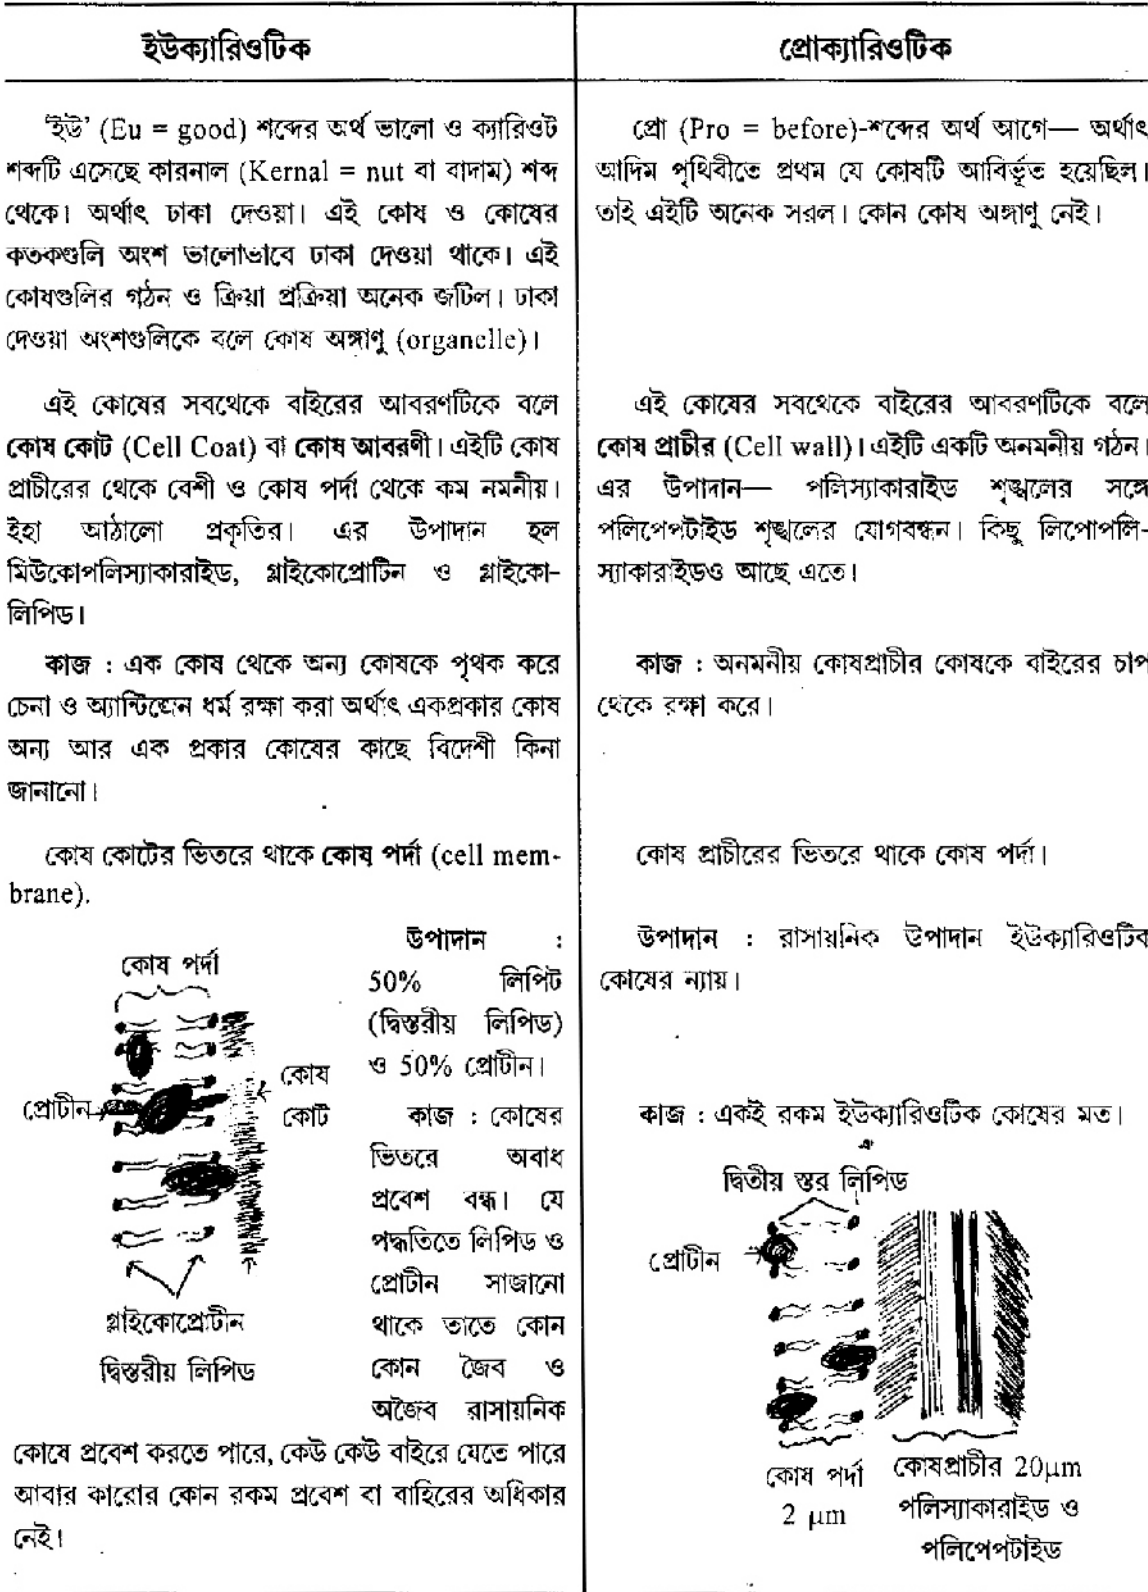 ইউক্যারিওটিক
'ইউ' (Eu = good) শব্দের অর্থ ভালো ও ক্যারিওট
শব্দটি এসেছে কারনাল (Kernal = nut বা বাদাম) শব্দ
থেকে। অর্থাৎ ঢাকা দেওয়া। এই কোষ ও কোষের
কতকগুলি অংশ ভালোভাবে ঢাকা দেওয়া থাকে। এই
কোষগুলির গঠন ও ক্রিয়া প্রক্রিয়া অনেক জটিল। ঢাকা
দেওয়া অংশগুলিকে বলে কোষ অঙ্গাণু (organelle)।
এই কোষের সবথেকে বাইরের আবরণটিকে বলে
কোষ কোট (Cell Coat) বা কোষ আবরণী। এইটি কোষ
প্রাচীরের থেকে বেশী ও কোষ পর্দা থেকে কম নমনীয়।
ইহা আঠালো প্রকৃতির। এর উপাদান হল
মিউকোপলিস্যাকারাইড, গ্লাইকোপ্রোটিন ও গ্লাইকো-
লিপিড।
কাজ : এক কোষ থেকে অন্য কোষকে পৃথক করে
চেনা ও অ্যান্টিজেন ধর্ম রক্ষা করা অর্থাৎ একপ্রকার কোষ
অন্য আর এক প্রকার কোষের কাছে বিদেশী কিনা
জানানো।
কোষ কোটের ভিতরে থাকে কোষ পর্দা (cell mem-
brane).
কোষ পর্দা
প্রোটীন
কোষ
কোট
গ্লাইকোপ্রোটীন
দ্বিস্তরীয় লিপিড
উপাদান :
50% লিপিট
(দ্বিস্তরীয় লিপিড)
ও 50% প্রোটীন।
কাজ : কোষের
ভিতরে অবাধ
প্রবেশ বন্ধ। যে
পদ্ধতিতে লিপিড ও
প্রোটীন সাজানো
থাকে তাতে কোন
কোন জৈব ও
অজৈব রাসায়নিক
কোষে প্রবেশ করতে পারে, কেউ কেউ বাইরে যেতে পারে
আবার কারোর কোন রকম প্রবেশ বা বাহিরের অধিকার
নেই।
প্রোক্যারিওটিক
প্রো (Pro = before)-শব্দের অর্থ আগে— অর্থাৎ
আদিম পৃথিবীতে প্রথম যে কোষটি আবির্ভূত হয়েছিল।
তাই এইটি অনেক সরল। কোন কোষ অঙ্গাণু নেই।
এই কোষের সবথেকে বাইরের আবরণটিকে বলে
কোষ প্রাচীর (Cell wall)। এইটি একটি অনমনীয় গঠন।
এর উপাদান— পলিস্যাকারাইড শৃঙ্খলের সঙ্গে
পলিপেপটাইড শৃঙ্খলের যোগবন্ধন। কিছু লিপোপলি-
স্যাকারাইডও আছে এতে।
কাজ : অনমনীয় কোষপ্রাচীর কোষকে বাইরের চাপ
থেকে রক্ষা করে।
কোষ প্রাচীরের ভিতরে থাকে কোষ পর্দা।
উপাদান : রাসায়নিক উপাদান ইউক্যারিওটিক
কোষের ন্যায়।
কাজ : একই রকম ইউক্যারিওটিক কোষের মত।
দ্বিতীয় স্তর লিপিড
প্রোটীন
কোষ পর্দা
2 μm
কোষপ্রাচীর 20μm
পলিস্যাকারাইড ও
পলিপেপটাইড